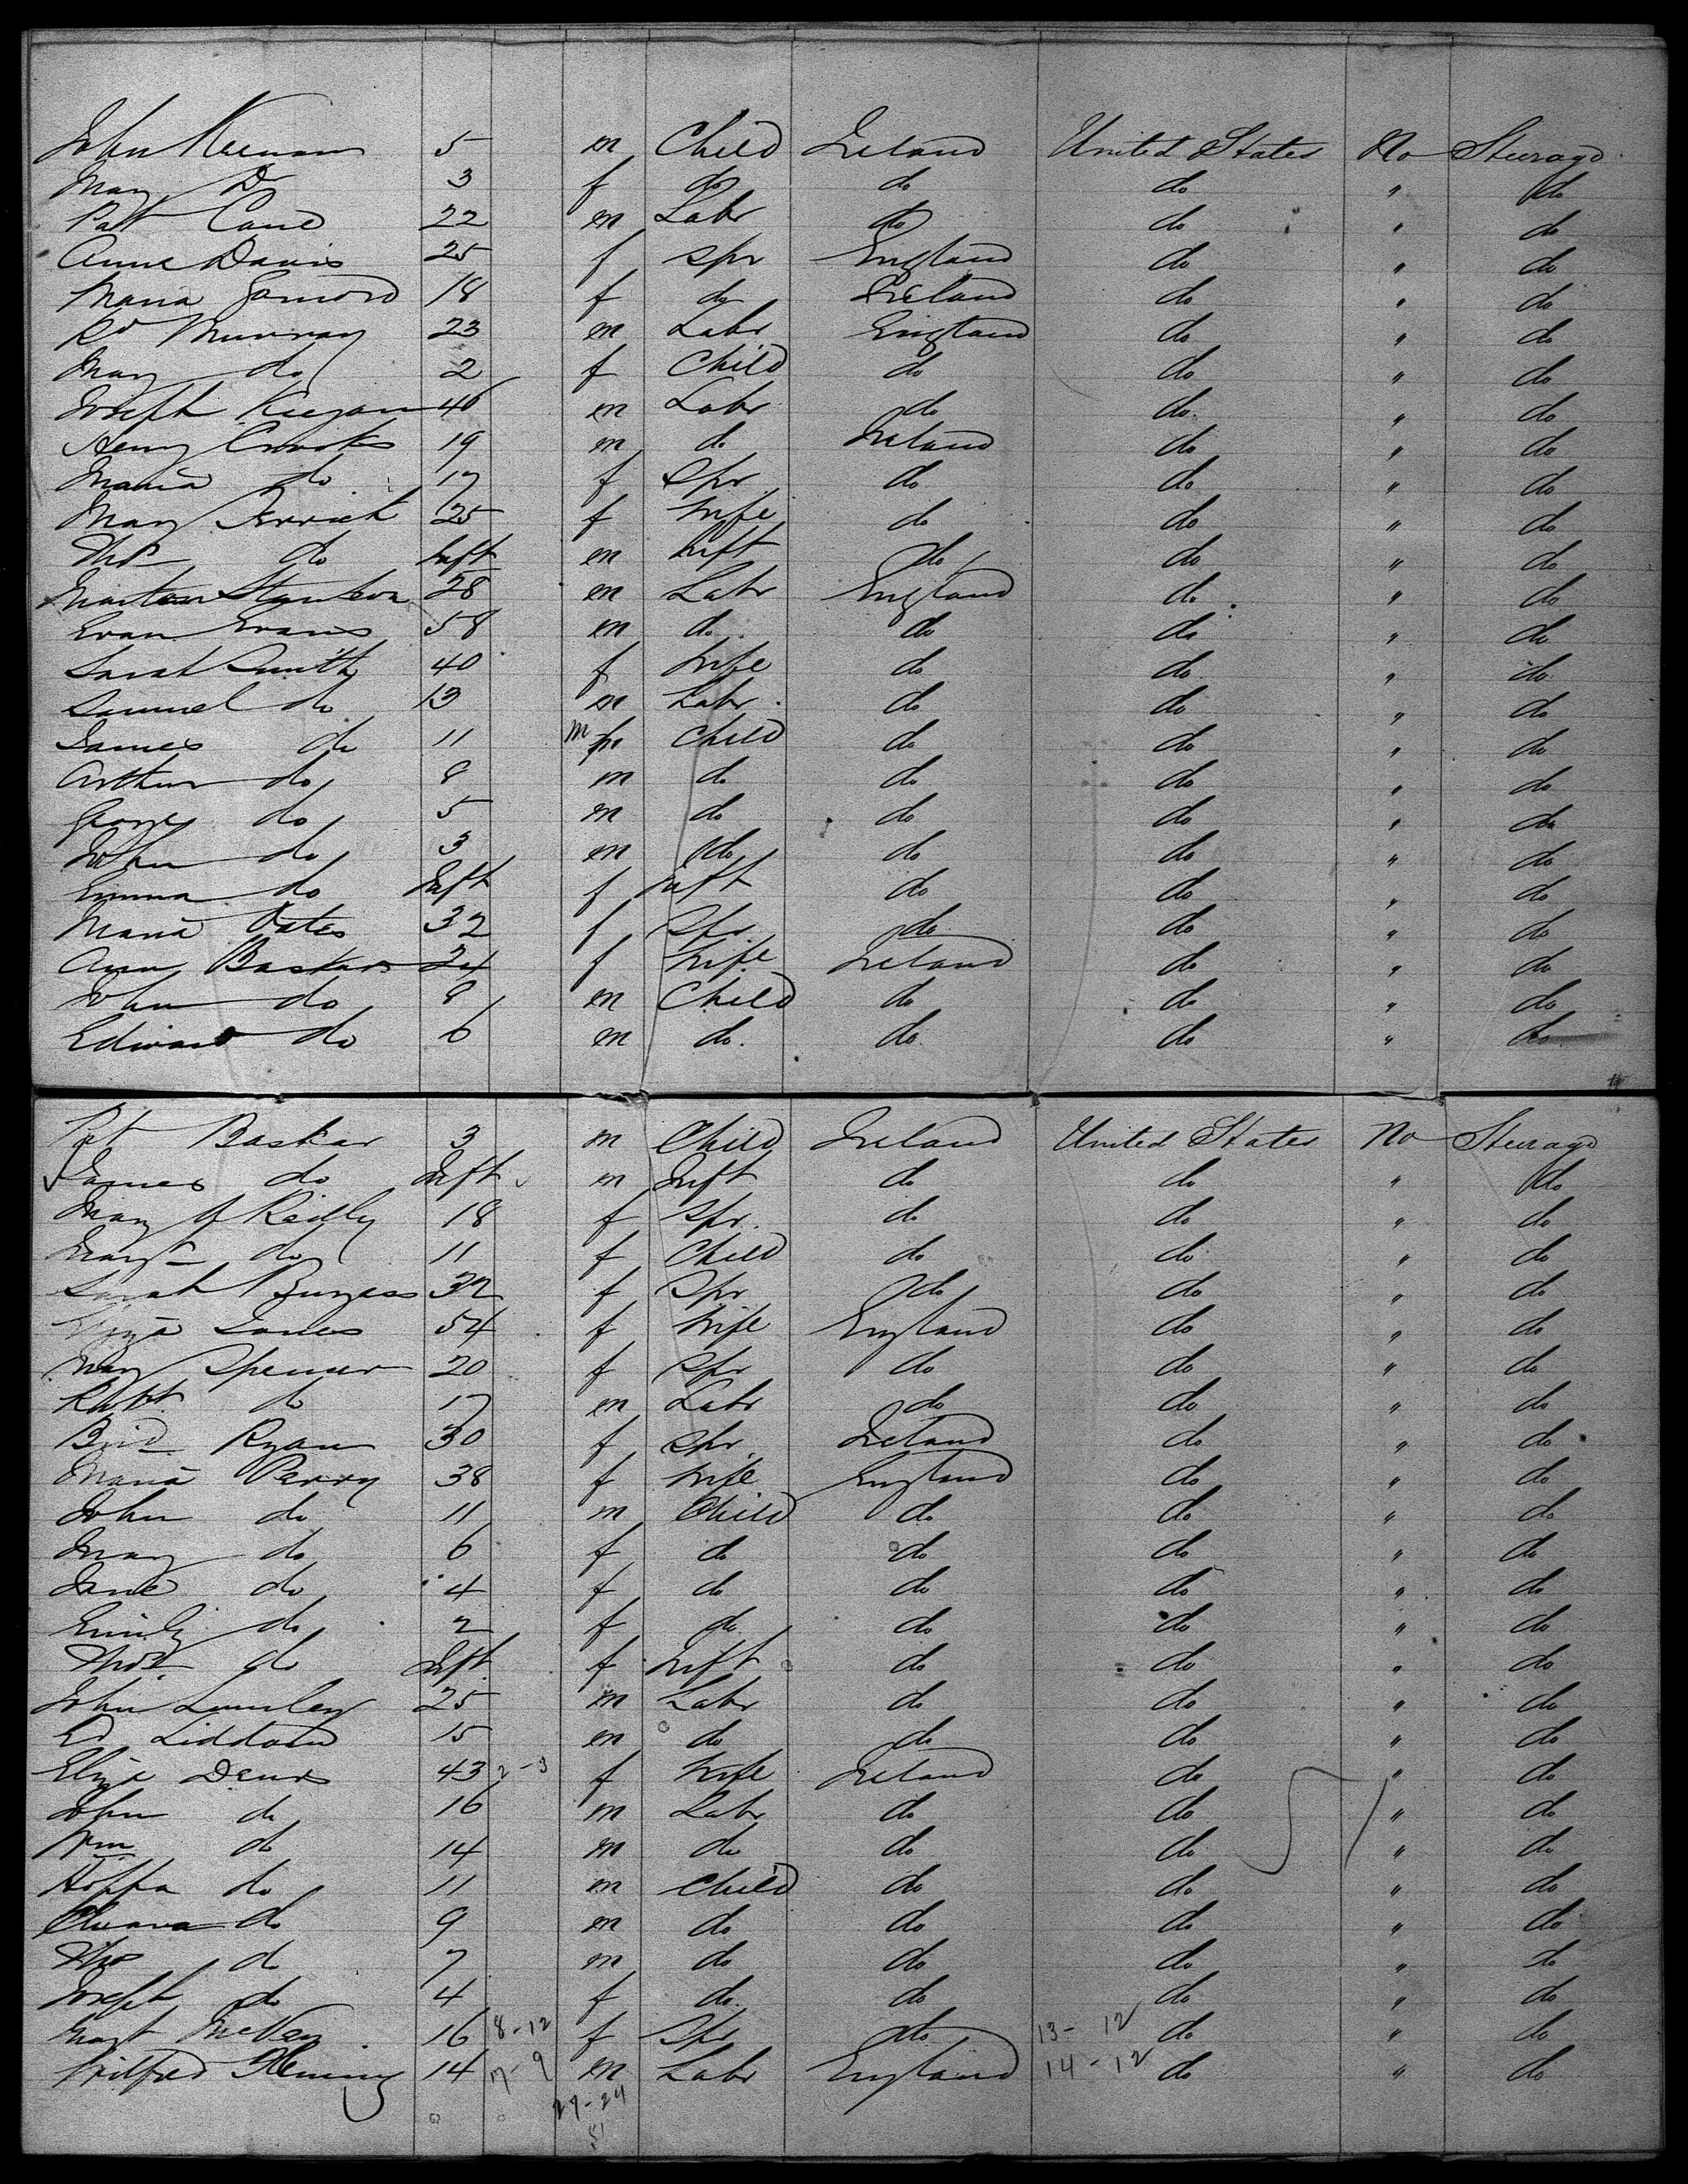 John Keenan 5 m Child Ireland United States No Steerage
Mary Do 3 f do do do " do
Patt Cane 22 m Labr do do " do
Anne Davis 25 f Spr England do " do
Maria 18 f do Ireland do " do
Rd Murray 23 m Labr England do " do
Mary do 2 f Child do do " do
Joseph Keegan 46 m Labr do do " do
Henry Crooks 19 m do Ireland do " do
Maria do 17 f Spr do do " do
Mary 25 f Wife do do " do
Thos do Inft m Inft do do " do
Martin Stanton 28 m Labr England do " do
Evan Evans 58 m do do do " do
Sarah Smith 40 f Wife do do " do
Samuel do 13 m Labr do do " do
James do 11 m Child do do " do
Arthur do 8 m do do do " do
George do 5 m do do do " do
John do 3 m do do do " do
Emma do Inft f Inft do do " do
Maria Oates 32 f Spr do do " do
Ann Baskar 24 f Wife Ireland do " do
John do 8 m Child do do " do
Edward do 6 m do do do " do
Pat Baskar 3 m Child Ireland United States No Steerage
James do Inft m Inft do do " do
Mary O'Reilly 18 f Spr do do " do
Margt do 11 f Child do do " do
Sarah Burgess 32 f Spr do do " do
Eliza Jones 54 f Wife England do " do
Mary Spencer 20 f Spr do do " do
Robt do 17 m Labr do do " do
Brid Ryan 30 f Spr Ireland do " do
Maria Perry 38 f Wife England do " do
John do 11 m Child do do " do
Mary do 6 f do do do " do
Jane do 4 f do do do " do
Emily do 2 f do do do " do
Thos do Inft f Inft do do " do
John Lumley 25 m Labr do do " do
Ed Liddard 15 m do do do " do
Eliza Davis 43 2-3 f Wife Ireland do " do
John do 16 m Labr do do " do
Wm do 14 m do do do " do
do 11 m Child do do " do
do 9 m do do do " do
Thos do 7 m do do do " do
Joseph do 4 f do do do " do
Margt McVey 16 8-12 f Spr do 13-12 do " do
Wilfred Fleming 14 7-9 m Labr England 14-12 do " do
27-24
51